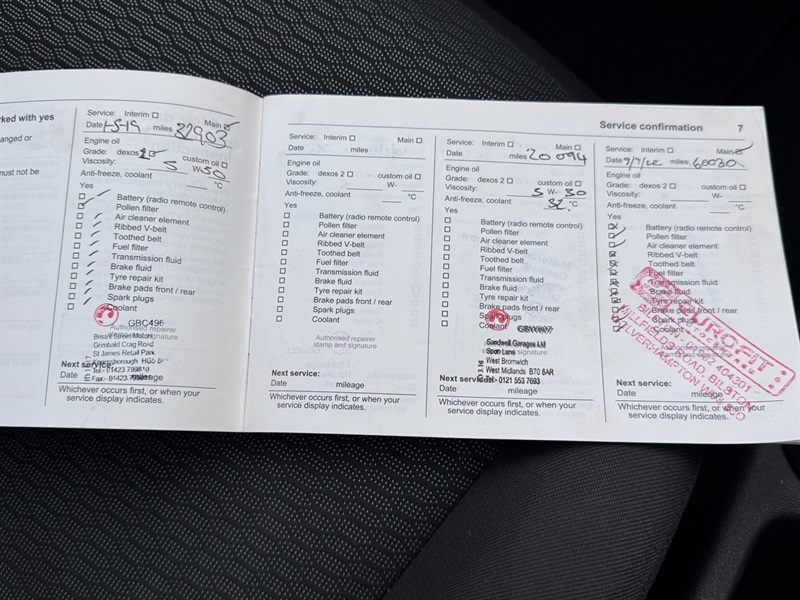 rked with yes
anged or
must not be
Service: Interim Main
Date 1-5-19 miles 37903
Engine oil
Grade: dexos 2 custom oil
Viscosity: 5 W- 30
Anti-freeze, coolant °C
Yes
Battery (radio remote control)
Pollen filter
Air cleaner element
Ribbed V-belt
Toothed belt
Fuel filter
Transmission fluid
Brake fluid
Tyre repair kit
Brake pads front / rear
Spark plugs
Coolant
GBC496
Authorised repairer
stamp and signature
Bristol Street Motors
Grimbald Crag Road
St James Retail Park
Knaresborough HG5
Tel:- 01423
Fax:- 01423
Next service:
Date mileage
Whichever occurs first, or when your
service display indicates.
Service: Interim Main
Date miles
Engine oil
Grade: dexos 2 custom oil
Viscosity: W-
Anti-freeze, coolant °C
Yes
Battery (radio remote control)
Pollen filter
Air cleaner element
Ribbed V-belt
Toothed belt
Fuel filter
Transmission fluid
Brake fluid
Tyre repair kit
Brake pads front / rear
Spark plugs
Coolant
Authorised repairer
stamp and signature
Next service:
Date mileage
Whichever occurs first, or when your
service display indicates.
Service confirmation 7
Service: Interim Main
Date miles 20094
Engine oil
Grade: dexos 2 custom oil
Viscosity: 5 W- 30
Anti-freeze, coolant 32 °C
Yes
Battery (radio remote control)
Pollen filter
Air cleaner element
Ribbed V-belt
Toothed belt
Fuel filter
Transmission fluid
Brake fluid
Tyre repair kit
Brake pads front / rear
Spark plugs
Coolant
signature
Sandwell Garages Ltd
Spon Lane
West Bromwich
West Midlands B70 6AR
Tel:- 0121 553 7693
Next service:
Date mileage
Whichever occurs first, or when your
service display indicates.
Service: Interim Main
Date miles 60030
Engine oil
Grade: dexos 2 custom oil
Viscosity: W-
Anti-freeze, coolant °C
Yes
Battery (radio remote control)
Pollen filter
Air cleaner element
Ribbed V-belt
Toothed belt
Fuel filter
Transmission fluid
Brake fluid
Tyre repair kit
Brake pads front / rear
Spark plugs
Coolant
EUROFIT
404301
ROAD, BILSTON
WOLVERHAMPTON
Next service:
Date mileage
Whichever occurs first, or when your
service display indicates.